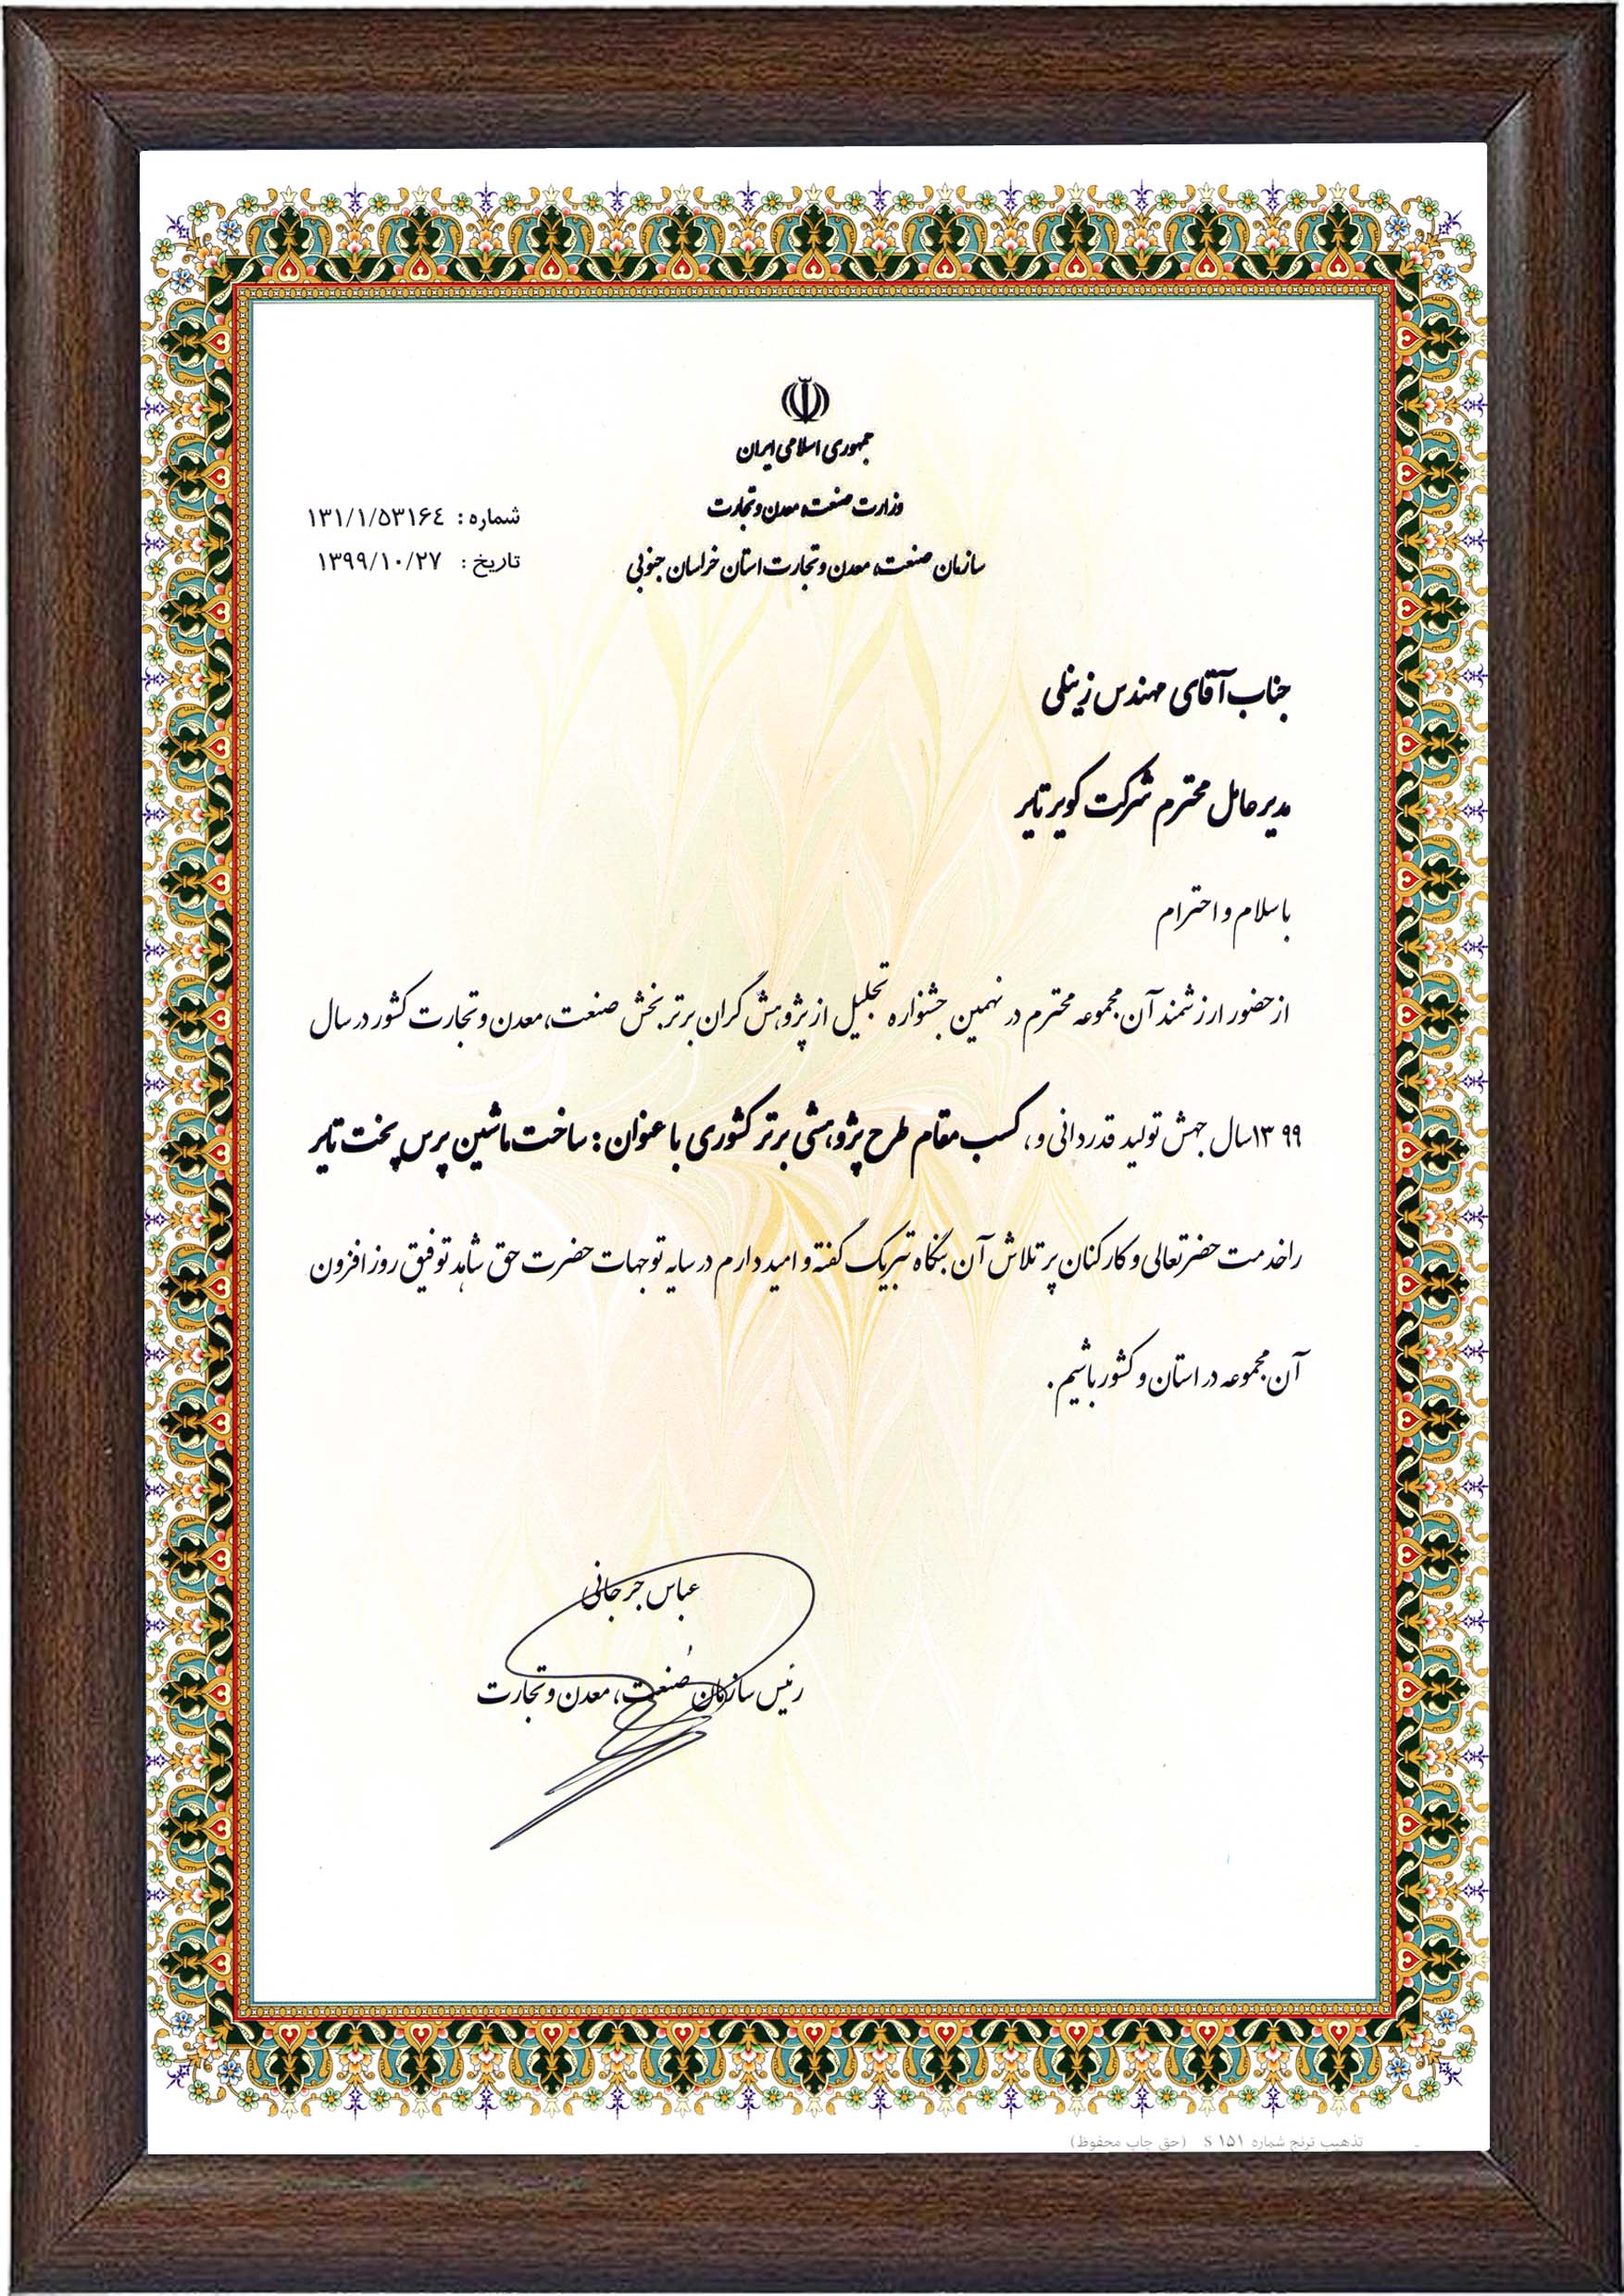 جمهوری اسلامی ایران
وزارت صنعت، معدن و تجارت
سازمان صنعت، معدن و تجارت استان خراسان جنوبی
شماره : ۱۳۱/۱/۵۳۱۶٤
تاریخ : ۱۳۹۹/۱۰/۲۷
جناب آقای مهندس زینلی
مدیرعامل محترم شرکت کویر تایر
با سلام و احترام
از حضور ارزشمند آن مجموعه محترم در نهمین جشنواره تجلیل از پژوهش گران برتر بخش صنعت، معدن و تجارت کشور در سال
۱۳۹۹ سال جهش تولید قدردانی و، کسب مقام طرح پژوهشی برتر کشوری با عنوان : ساخت ماشین پرس پخت تایر
را خدمت حضرتعالی و کارکنان پر تلاش آن بنگاه تبریک گفته و امید دارم در سایه توجهات حضرت حق شاهد توفیق روز افزون
آن مجموعه در استان و کشور باشیم .
عباس جرجانی
رئیس سازمان صنعت، معدن و تجارت
تذهیب ترنج شماره S ۱۵۱ (حق چاپ محفوظ)